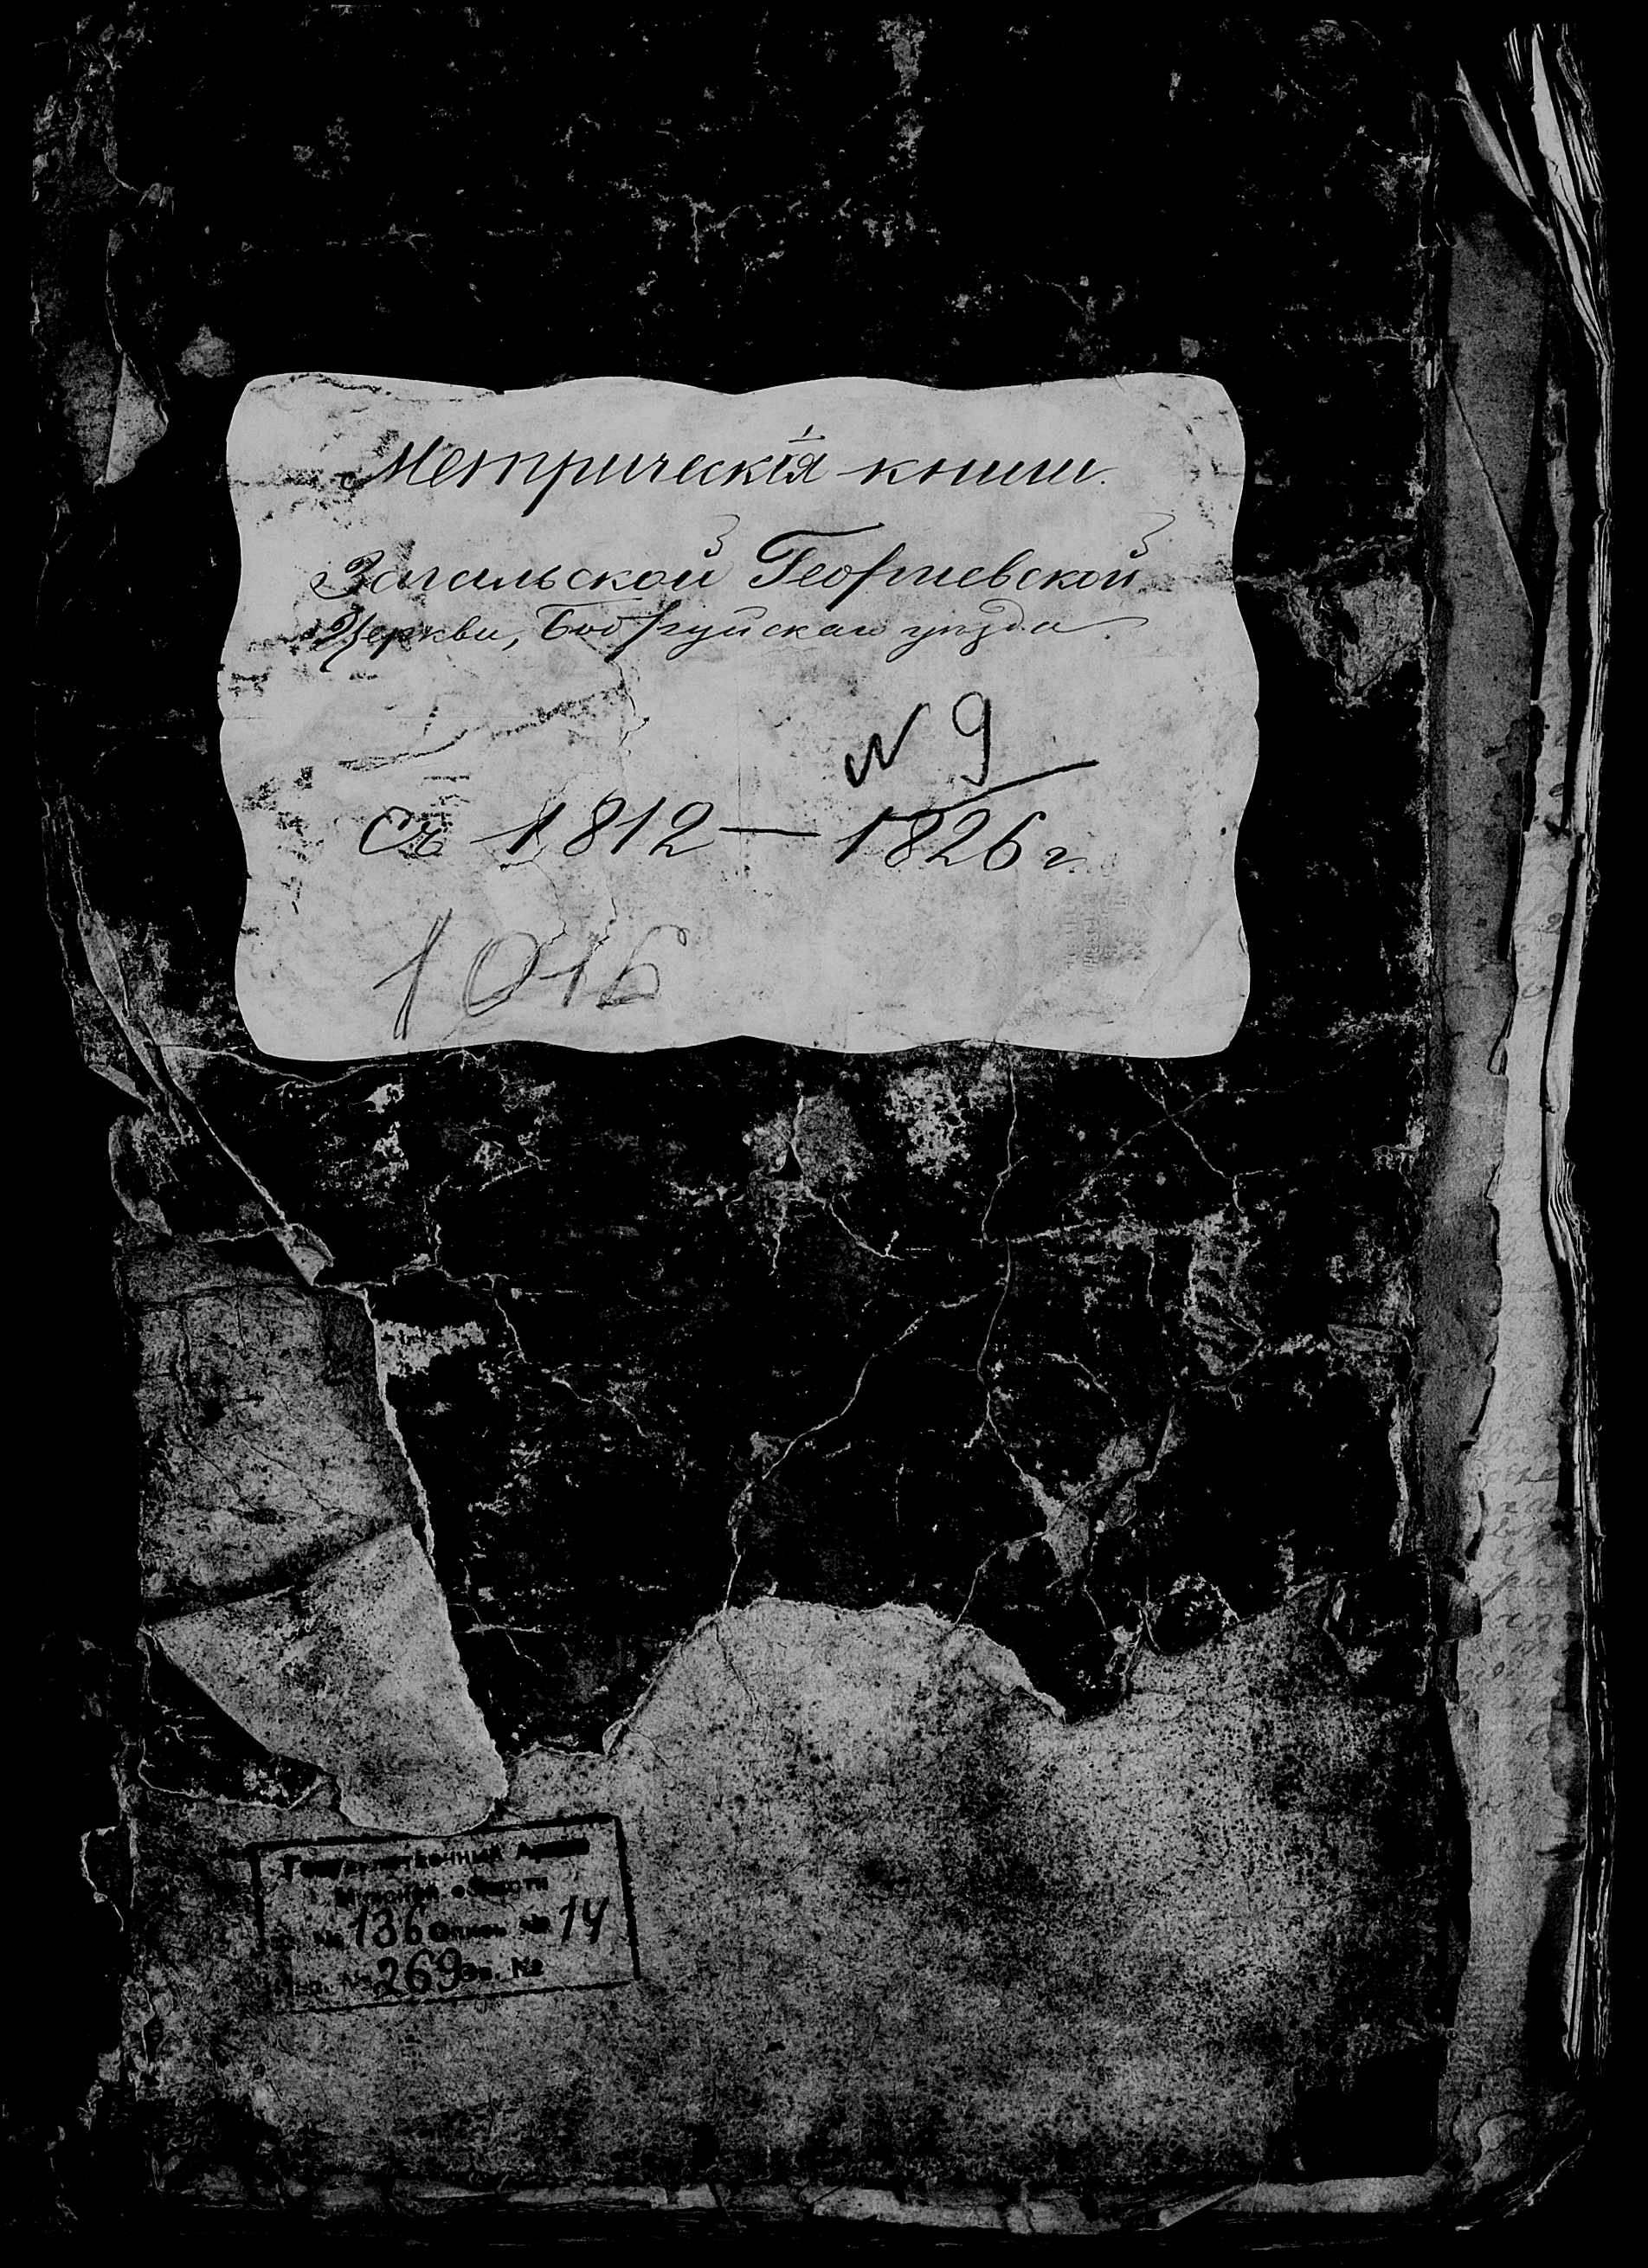 Метрическія книги.
Загальской Георгиевской
Церкви, Бобруйскаго уѣзда.
N 9
Съ 1812 — 1826 г.
1016
Государственный Архив
Минской области
Ф. № 136 Опись № 14
№ 269 Ев. №